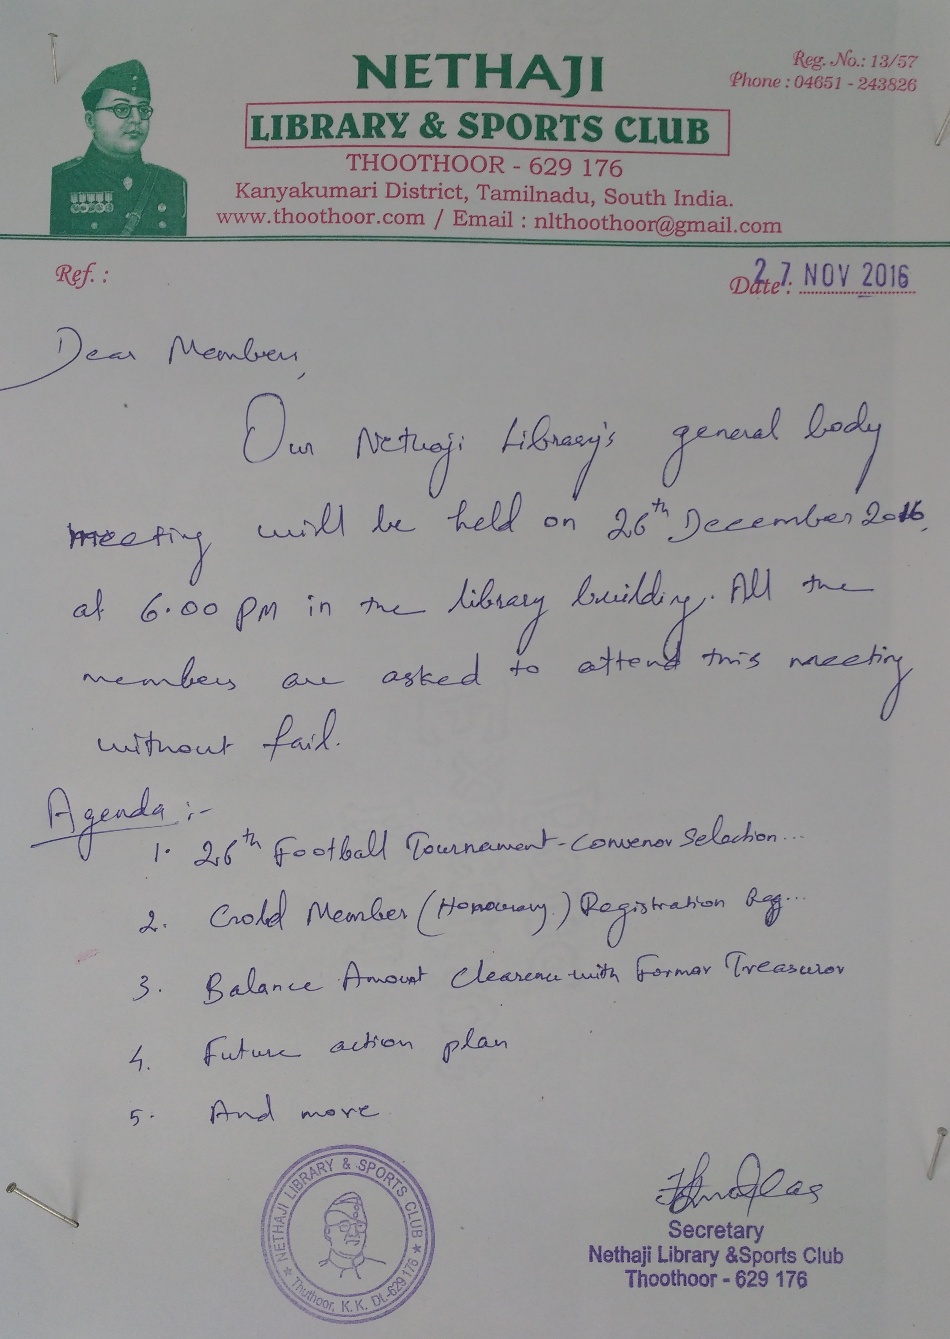 NETHAJI
LIBRARY & SPORTS CLUB
THOOTHOOR - 629 176
Kanyakumari District, Tamilnadu, South India.
www.thoothoor.com / Email : nlthoothoor@gmail.com
Reg. No.: 13/57
Phone : 04651 - 243826
Ref. :
Date: 27 NOV 2016
Dear Members,
Our Nethaji Library's general body
meeting will be held on 26th December 2016,
at 6.00 PM in the library building. All the
members are asked to attend this meeting
without fail.
Agenda :-
1. 26th Football Tournament - Convenor Selection...
2. Member (Honourary) Registration
3. Balance Amount Clearence with Former Treasuror
4. Future action plan
5. And more
NETHAJI LIBRARY & SPORTS CLUB
Thuthoor, K.K. Dt.-629 176
Secretary
Nethaji Library &Sports Club
Thoothoor - 629 176